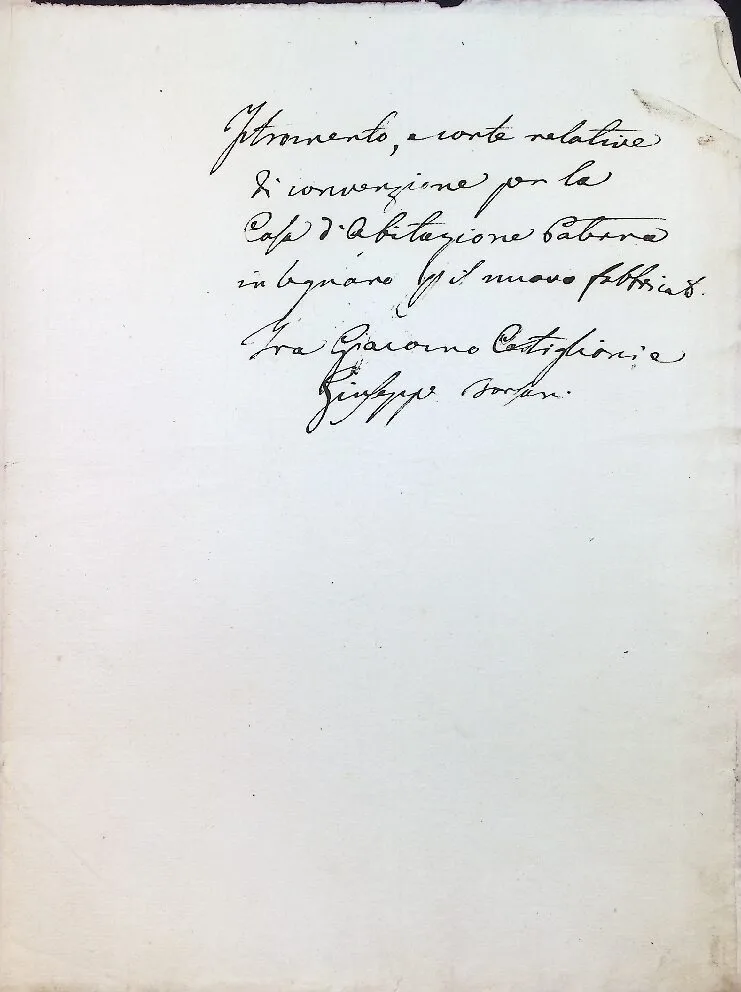 Istromento, e carte relative
di convenzione per la
Casa d'Abitazione Paterna
in Legnano p il nuovo fabbricato.
Tra Giacomo Castiglioni e
Giuseppe